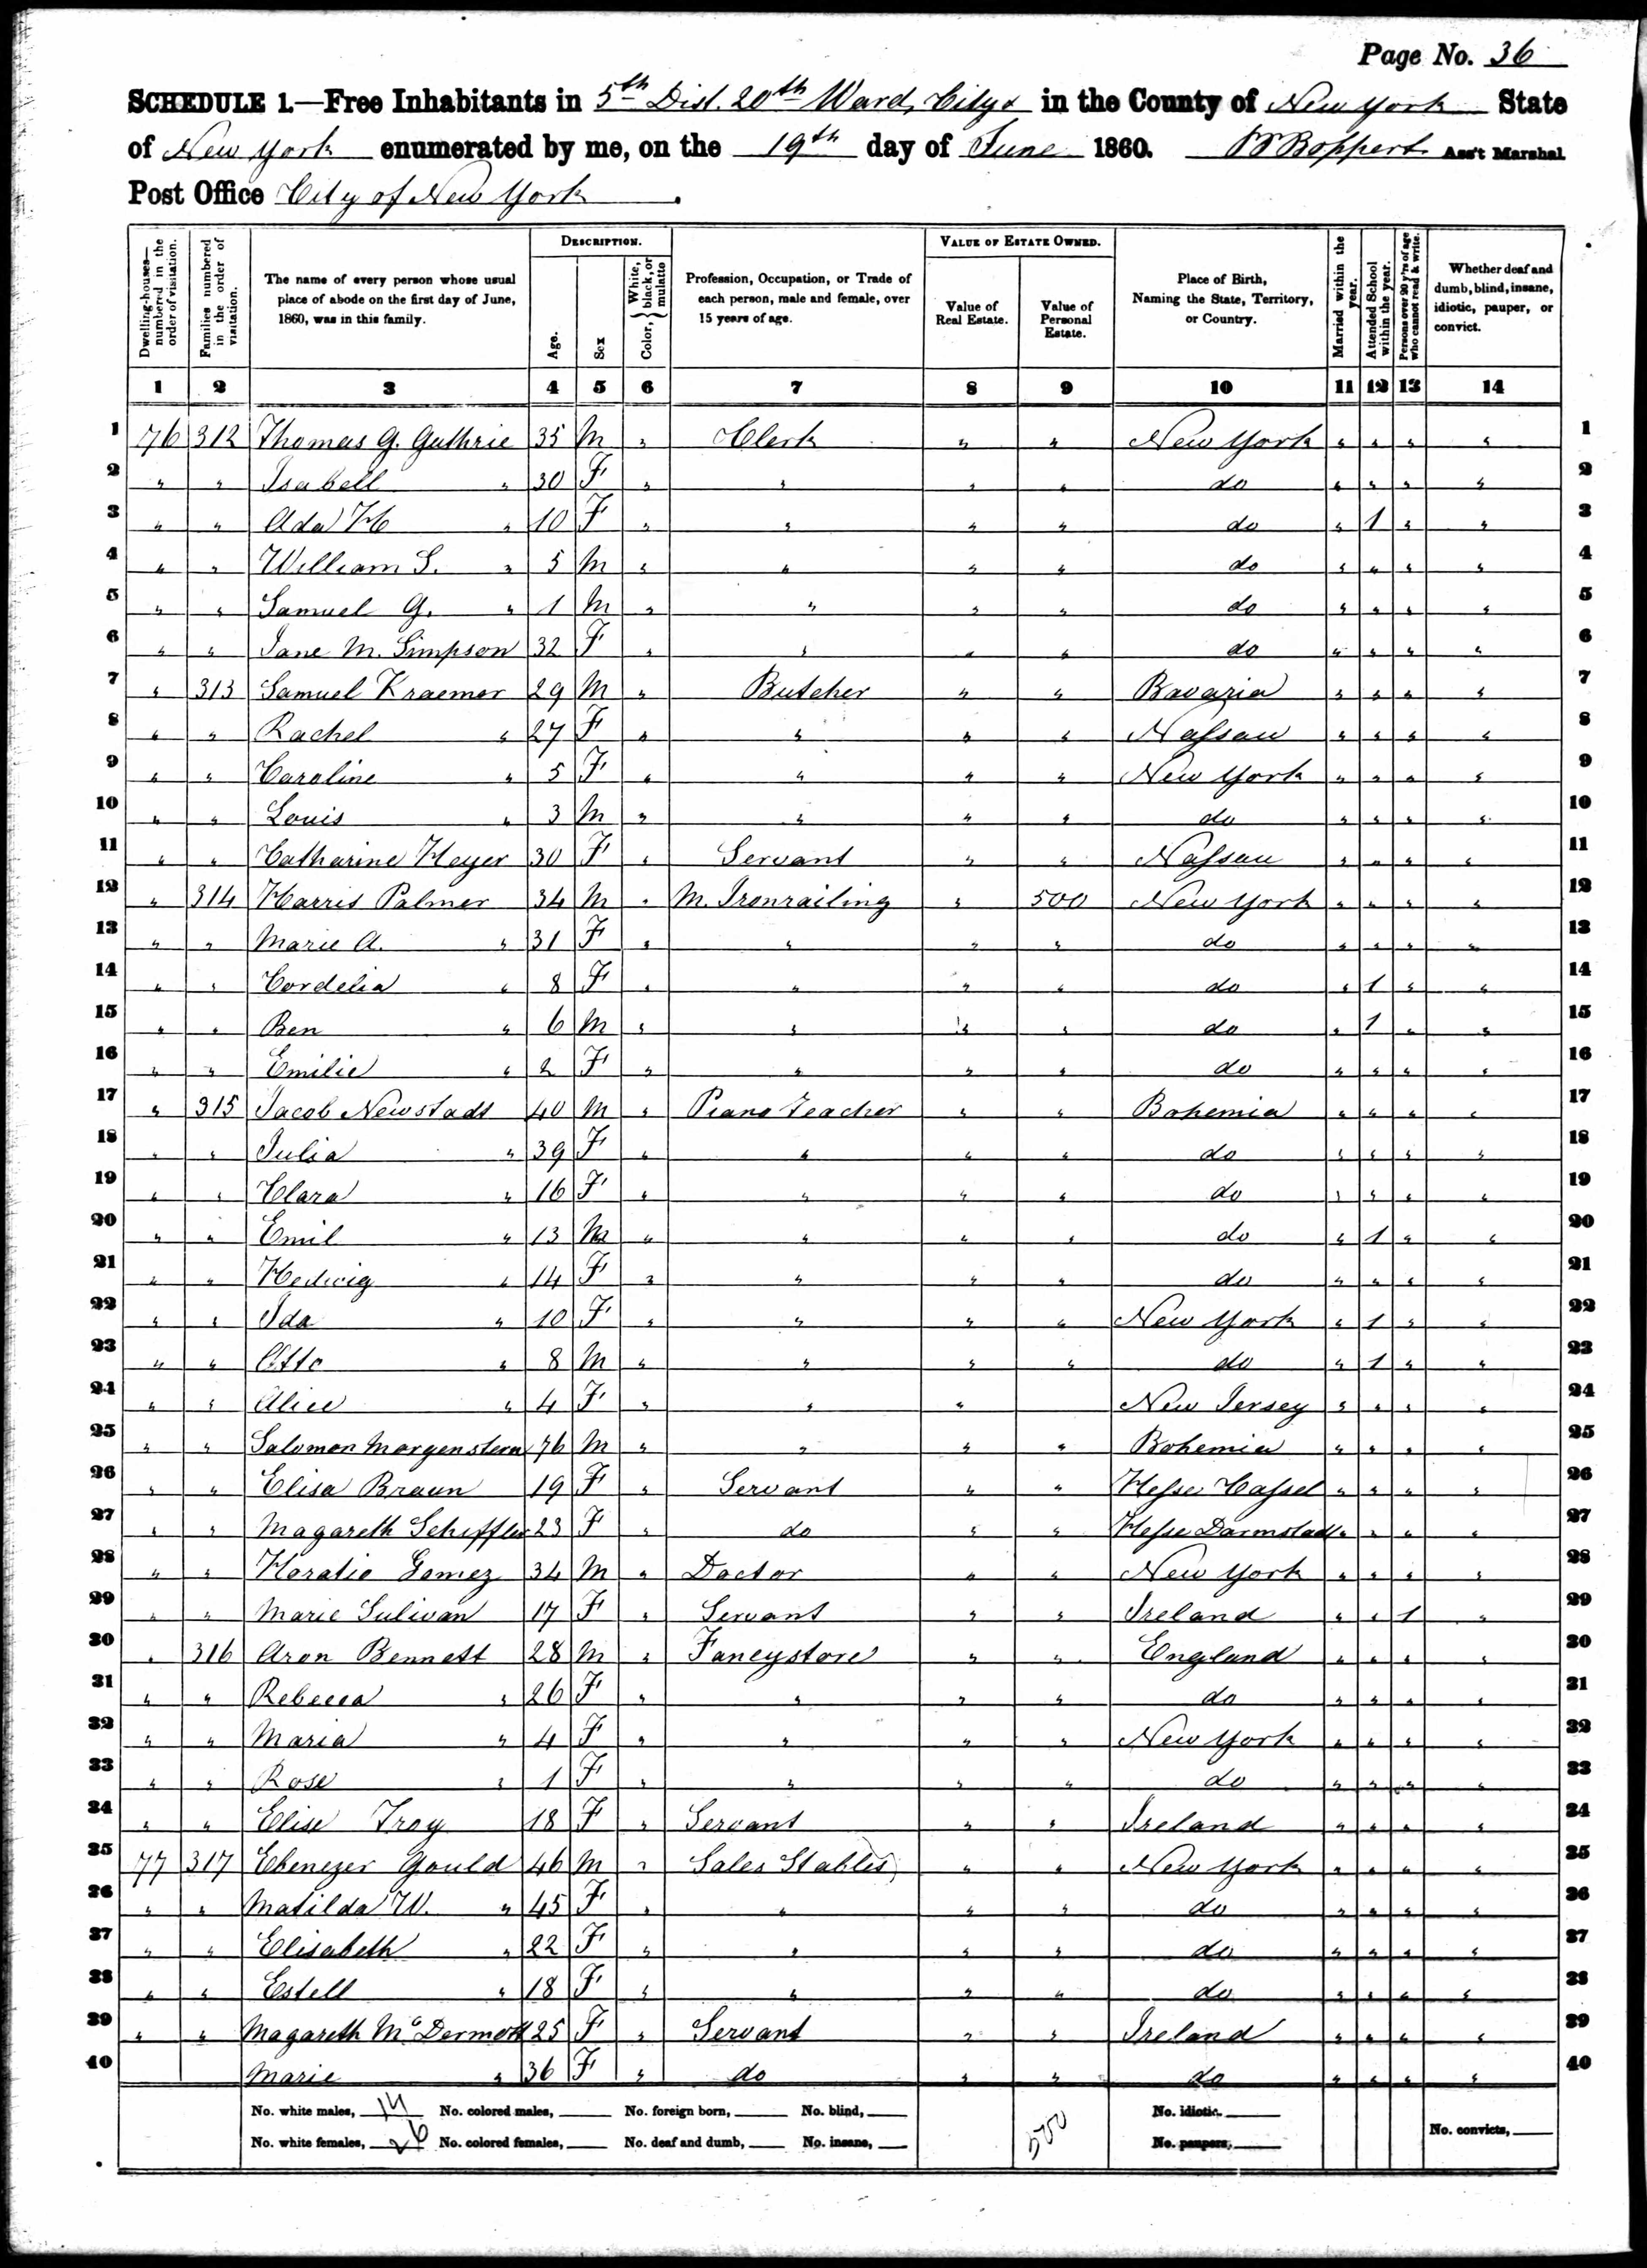 Page No. 36
SCHEDULE 1.—Free Inhabitants in 5th Dist. 20th Ward, City & in the County of New York State
of New York enumerated by me, on the 19th day of June 1860. Boppert Ass't Marshal
Post Office City of New York.
Dwelling-houses—numbered in the order of visitation. Families numbered in the order of visitation. The name of every person whose usual place of abode on the first day of June, 1860, was in this family. DESCRIPTION. Age. Sex Color, White, black, or mulatto Profession, Occupation, or Trade of each person, male and female, over 15 years of age. VALUE OF ESTATE OWNED. Value of Real Estate. Value of Personal Estate. Place of Birth, Naming the State, Territory, or Country. Married within the year. Attended School within the year. Persons over 20 y'rs of age who cannot read & write. Whether deaf and dumb, blind, insane, idiotic, pauper, or convict.
1 2 3 4 5 6 7 8 9 10 11 12 13 14
1 76 312 Thomas G. Guthrie 35 M " Clerk " " New York " " " " 1
2 " " Isabell " 30 F " " " " do " " " " 2
3 " " Ada H " 10 F " " " " do " 1 " " 3
4 " " William S. " 5 M " " " " do " " " " 4
5 " " Samuel G. " 1 M " " " " do " " " " 5
6 " " Jane M. Simpson 32 F " " " " do " " " " 6
7 " 313 Samuel Kraemer 29 M " Butcher " " Bavaria " " " " 7
8 " " Rachel " 27 F " " " " Nassau " " " " 8
9 " " Caroline " 5 F " " " " New York " " " " 9
10 " " Louis " 3 M " " " " do " " " " 10
11 " " Catharine Heyer 30 F " Servant " " Nassau " " " " 11
12 " 314 Harris Palmer 34 M " M. Ironrailing " 500 New York " " " " 12
13 " " Marie A. " 31 F " " " " do " " " " 13
14 " " Cordelia " 8 F " " " " do " 1 " " 14
15 " " Ben " 6 M " " " " do " 1 " " 15
16 " " Emilie " 2 F " " " " do " " " " 16
17 " 315 Jacob Newstadt 40 M " Piano Teacher " " Bohemia " " " " 17
18 " " Julia " 39 F " " " " do " " " " 18
19 " " Clara " 16 F " " " " do " " " " 19
20 " " Emil " 13 M " " " " do " 1 " " 20
21 " " Hedwig " 14 F " " " " do " " " " 21
22 " " Ida " 10 F " " " " New York " 1 " " 22
23 " " Otto " 8 M " " " " do " 1 " " 23
24 " " Alice " 4 F " " " New Jersey " " " " 24
25 " " Salomon Morgenstern 76 M " " " " Bohemia " " " " 25
26 " " Elisa Braun 19 F " Servant " " Hesse Cassel " " " " 26
27 " " Magareth Schiffler 23 F " do " " Hesse Darmstadt " " " " 27
28 " " Horatio Gomez 34 M " Doctor " " New York " " " " 28
29 " " Marie Sulivan 17 F " Servant " " Ireland " " 1 " 29
30 " 316 Aron Bennett 28 M " Fancystore " " England " " " " 30
31 " " Rebecca " 26 F " " " " do " " " " 31
32 " " Maria " 4 F " " " " New York " " " " 32
33 " " Rose " 1 F " " " " do " " " " 33
34 " " Elise Troy 18 F " Servant " " Ireland " " " " 34
35 77 317 Ebenezer Gould 46 M " Sales Stables " " New York " " " " 35
36 " " Matilda W. " 45 F " " " " do " " " " 36
37 " " Elisabeth " 22 F " " " " do " " " " 37
38 " " Estell " 18 F " " " " do " " " " 38
39 " " Magareth McDermott 25 F " Servant " " Ireland " " " " 39
40 Marie " 36 F " do " " do " " " " 40
No. white males, 14 No. colored males, No. foreign born, No. blind, 500 No. idiotic.
No. white females, 26 No. colored females, No. deaf and dumb, No. insane, No. paupers, No. convicts,